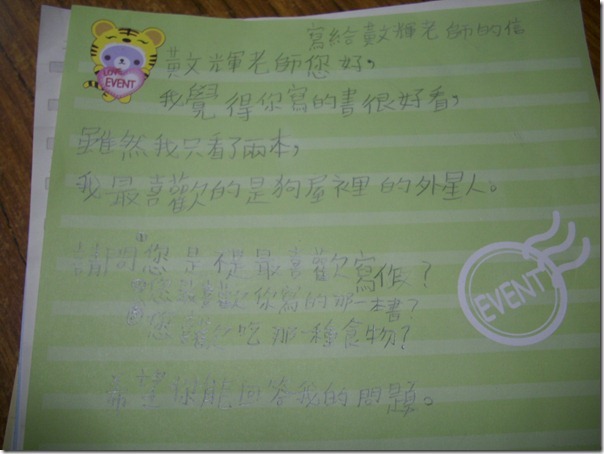 寫給黃文輝老師的信
LOVE
EVENT
黃文輝老師您好，
我覺得你寫的書很好看，
雖然我只看了兩本，
我最喜歡的是狗屋裡的外星人。
請問①您是不是最喜歡寫作？
②您最喜歡你寫的那一本書？
③您喜歡吃那一種食物？
希望你能回答我的問題。
EVENT